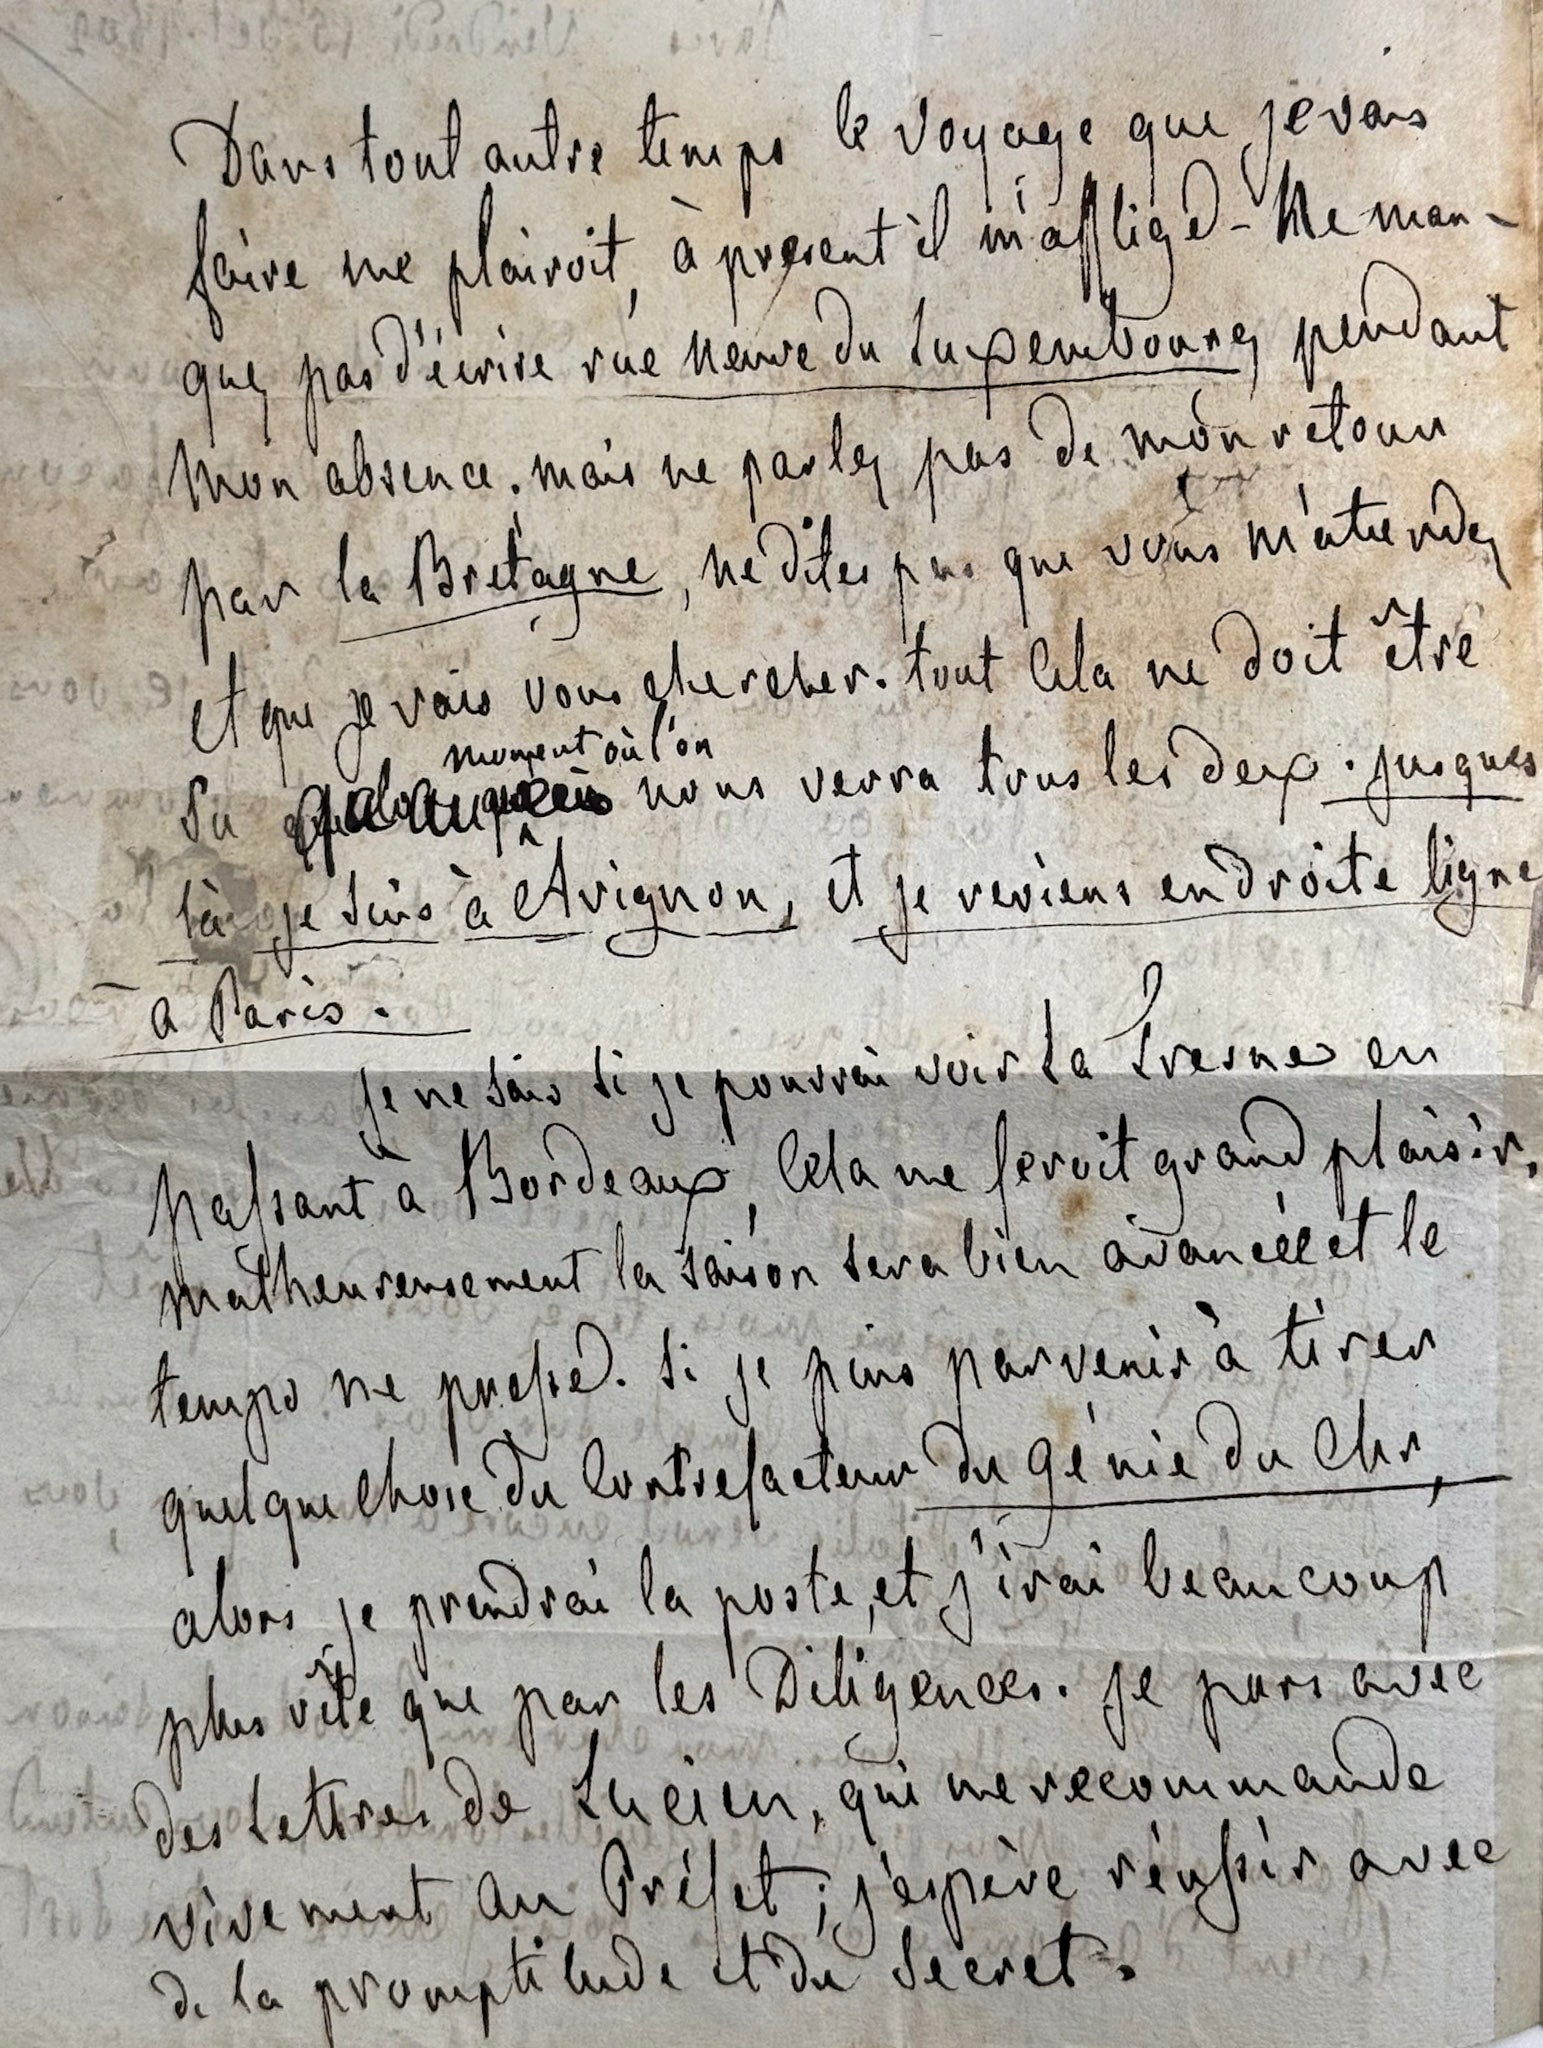 Dans tout autre temps le voyage que je vais
faire me plairoit, à présent il m'afflige - Ne man-
quez pas d'écrire rue neuve du Luxembourg pendant
mon absence. mais ne parlez pas de mon retour
par la Bretagne, ne dites pas que vous m'attendez
et que je vais vous chercher. tout cela ne doit être
moment où l'on
su qu'au nous verra tous les deux. jusques
là je suis à Avignon, et je reviens en droite ligne
à Paris.
je ne sais si je pourrai voir La Tresne en
passant à Bordeaux, cela me feroit grand plaisir,
malheureusement la saison sera bien avancée et le
temps me presse. Si je puis parvenir à tirer
quelque chose du Contrefacteur du génie du Chr,
alors je prendrai la poste, et j'irai beaucoup
plus vîte que par les Diligences. je pars avec
des Lettres de Lucien, qui me recommande
vivement au Préfet; j'espère réussir avec
de la promptitude et du secret.